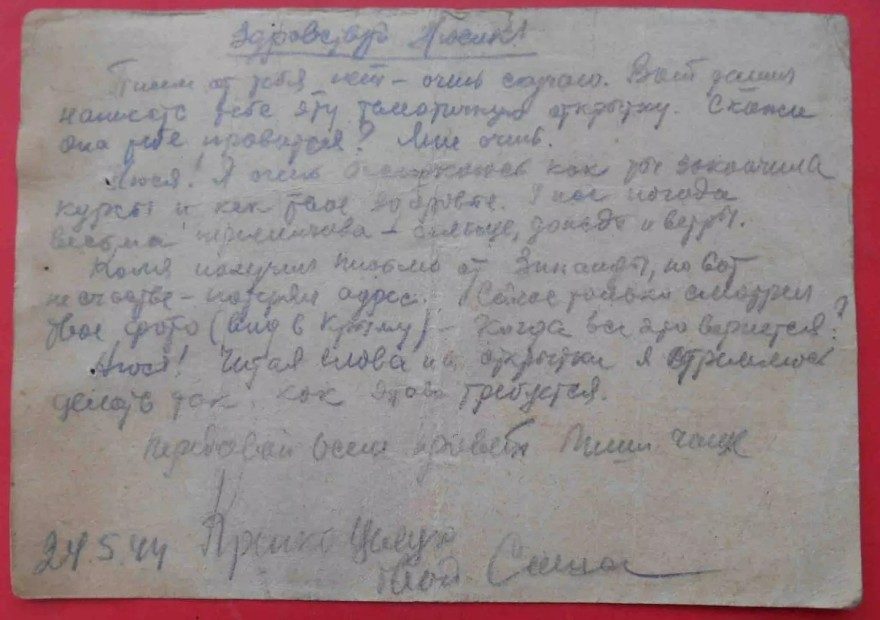 Здравствуй Люсик!
Писем от тебя нет – очень скучаю. Вот решил
написать тебе эту тематичную открытку. Скажи
она тебе нравится? Мне очень.
Люся! Я очень беспокоюсь как ты закончила
курсы и как твое здоровье. У нас погода
весьма переменчива – солнце, дождь и ветры.
Коля получил письмо от Зинаиды, но вот
несчастье – потерян адрес. Сейчас только смотрел
твое фото (вид в Крыму) – Когда все это вернется?
Люся! Читая слова на открытке я стремлюсь
делать так как этого требуется.
Передавай всем привет Пиши чаще
Крепко целую
24.5.44 твой Саша